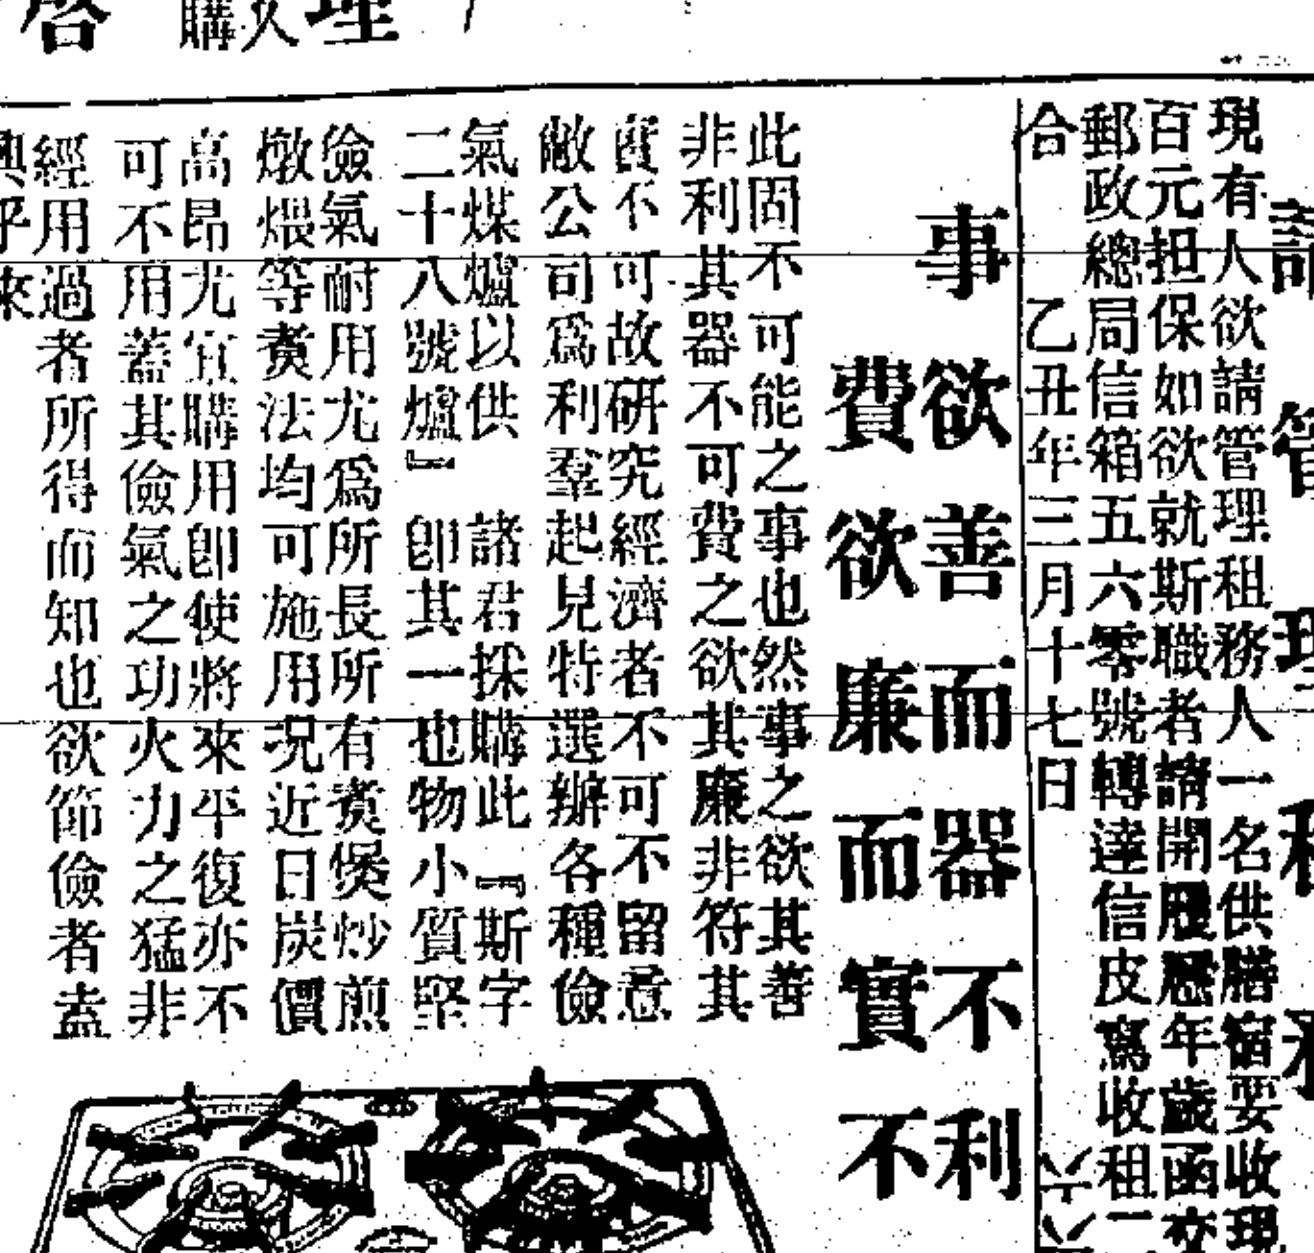 請管理租務
現有人欲請管理租務人一名供膳宿要收現
百元担保如欲就斯職者請開履歷年歲函交
郵政總局信箱五六零號轉達信皮寫收租一
合
乙丑年三月十七日
事欲善而器不利
費欲廉而實不
此固不可能之事也然事之欲其善
非利其器不可費之欲其廉非符其
實不可故研究經濟者不可不留意
敝公司爲利羣起見特選辦各種儉
氣煤爐以供 諸君採購此『斯字
二十八號爐』卽其一也物小質堅
儉氣耐用尤爲所長所有煑煲炒煎
燉煨等煑法均可施用況近日炭價
高昂尤宜購用卽使將來平復亦不
可不用蓋其儉氣之功火力之猛非
經用過者所得而知也欲節儉者盍
興乎來
理
購
啓